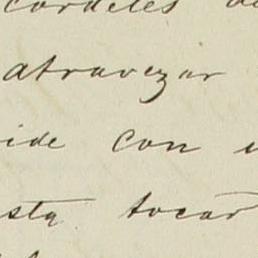 cordeles
atravezar
ide con
sta tocar